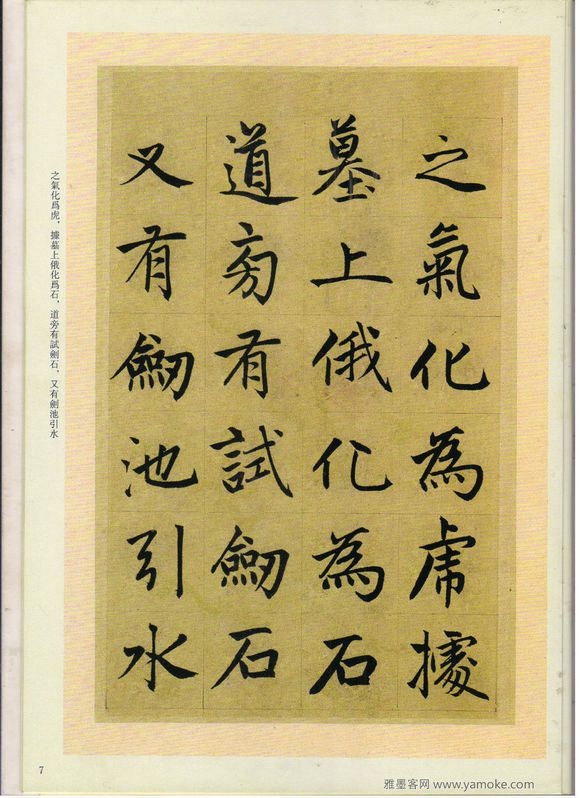 之氣化為虎據
墓上俄化為石
道旁有試劒石
又有劒池引水
之氣化爲虎，據墓上俄化爲石，道旁有試劍石，又有劍池引水
7
雅墨客网 www.yamoke.com